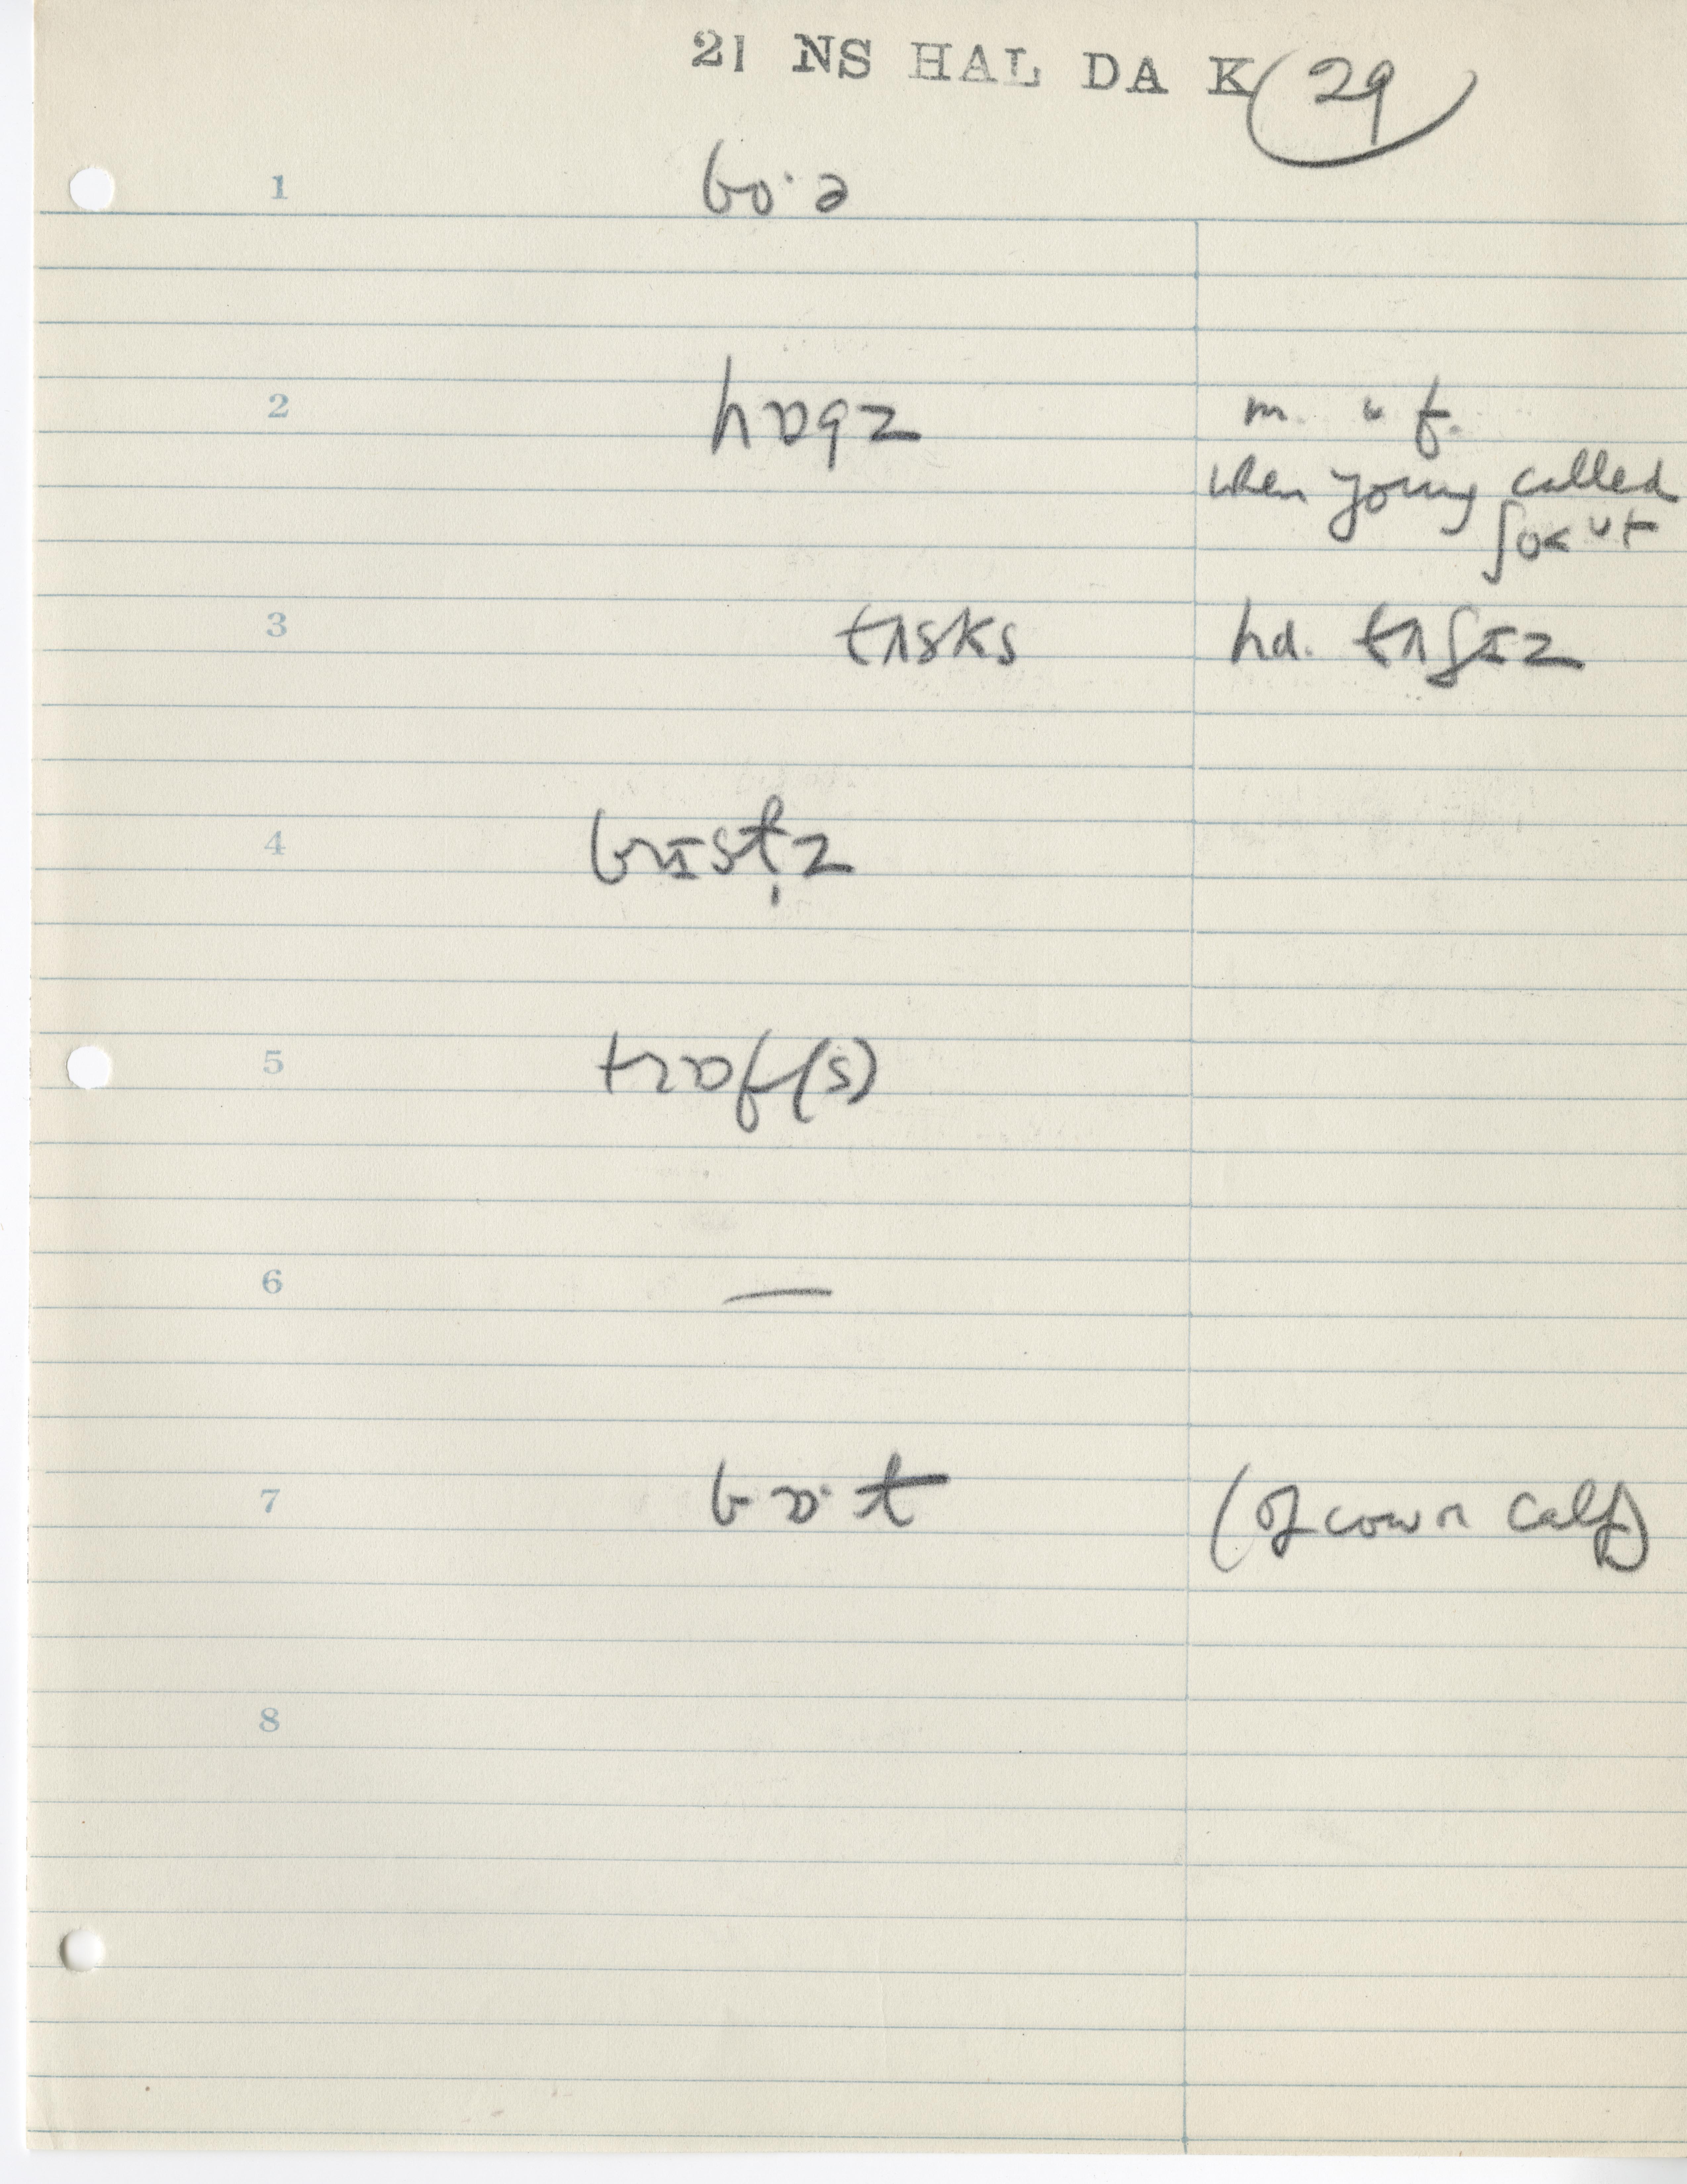 21 NS HAL DA K 29
1 bo·ə
2 hɒgz m. u f.
when young called
ʃoʊt
3 tʌsks hd. tʌʃɪz
4 brɪst̩z
5 trɒf(s)
6 —
7 bɒ·t (of cow or calf)
8